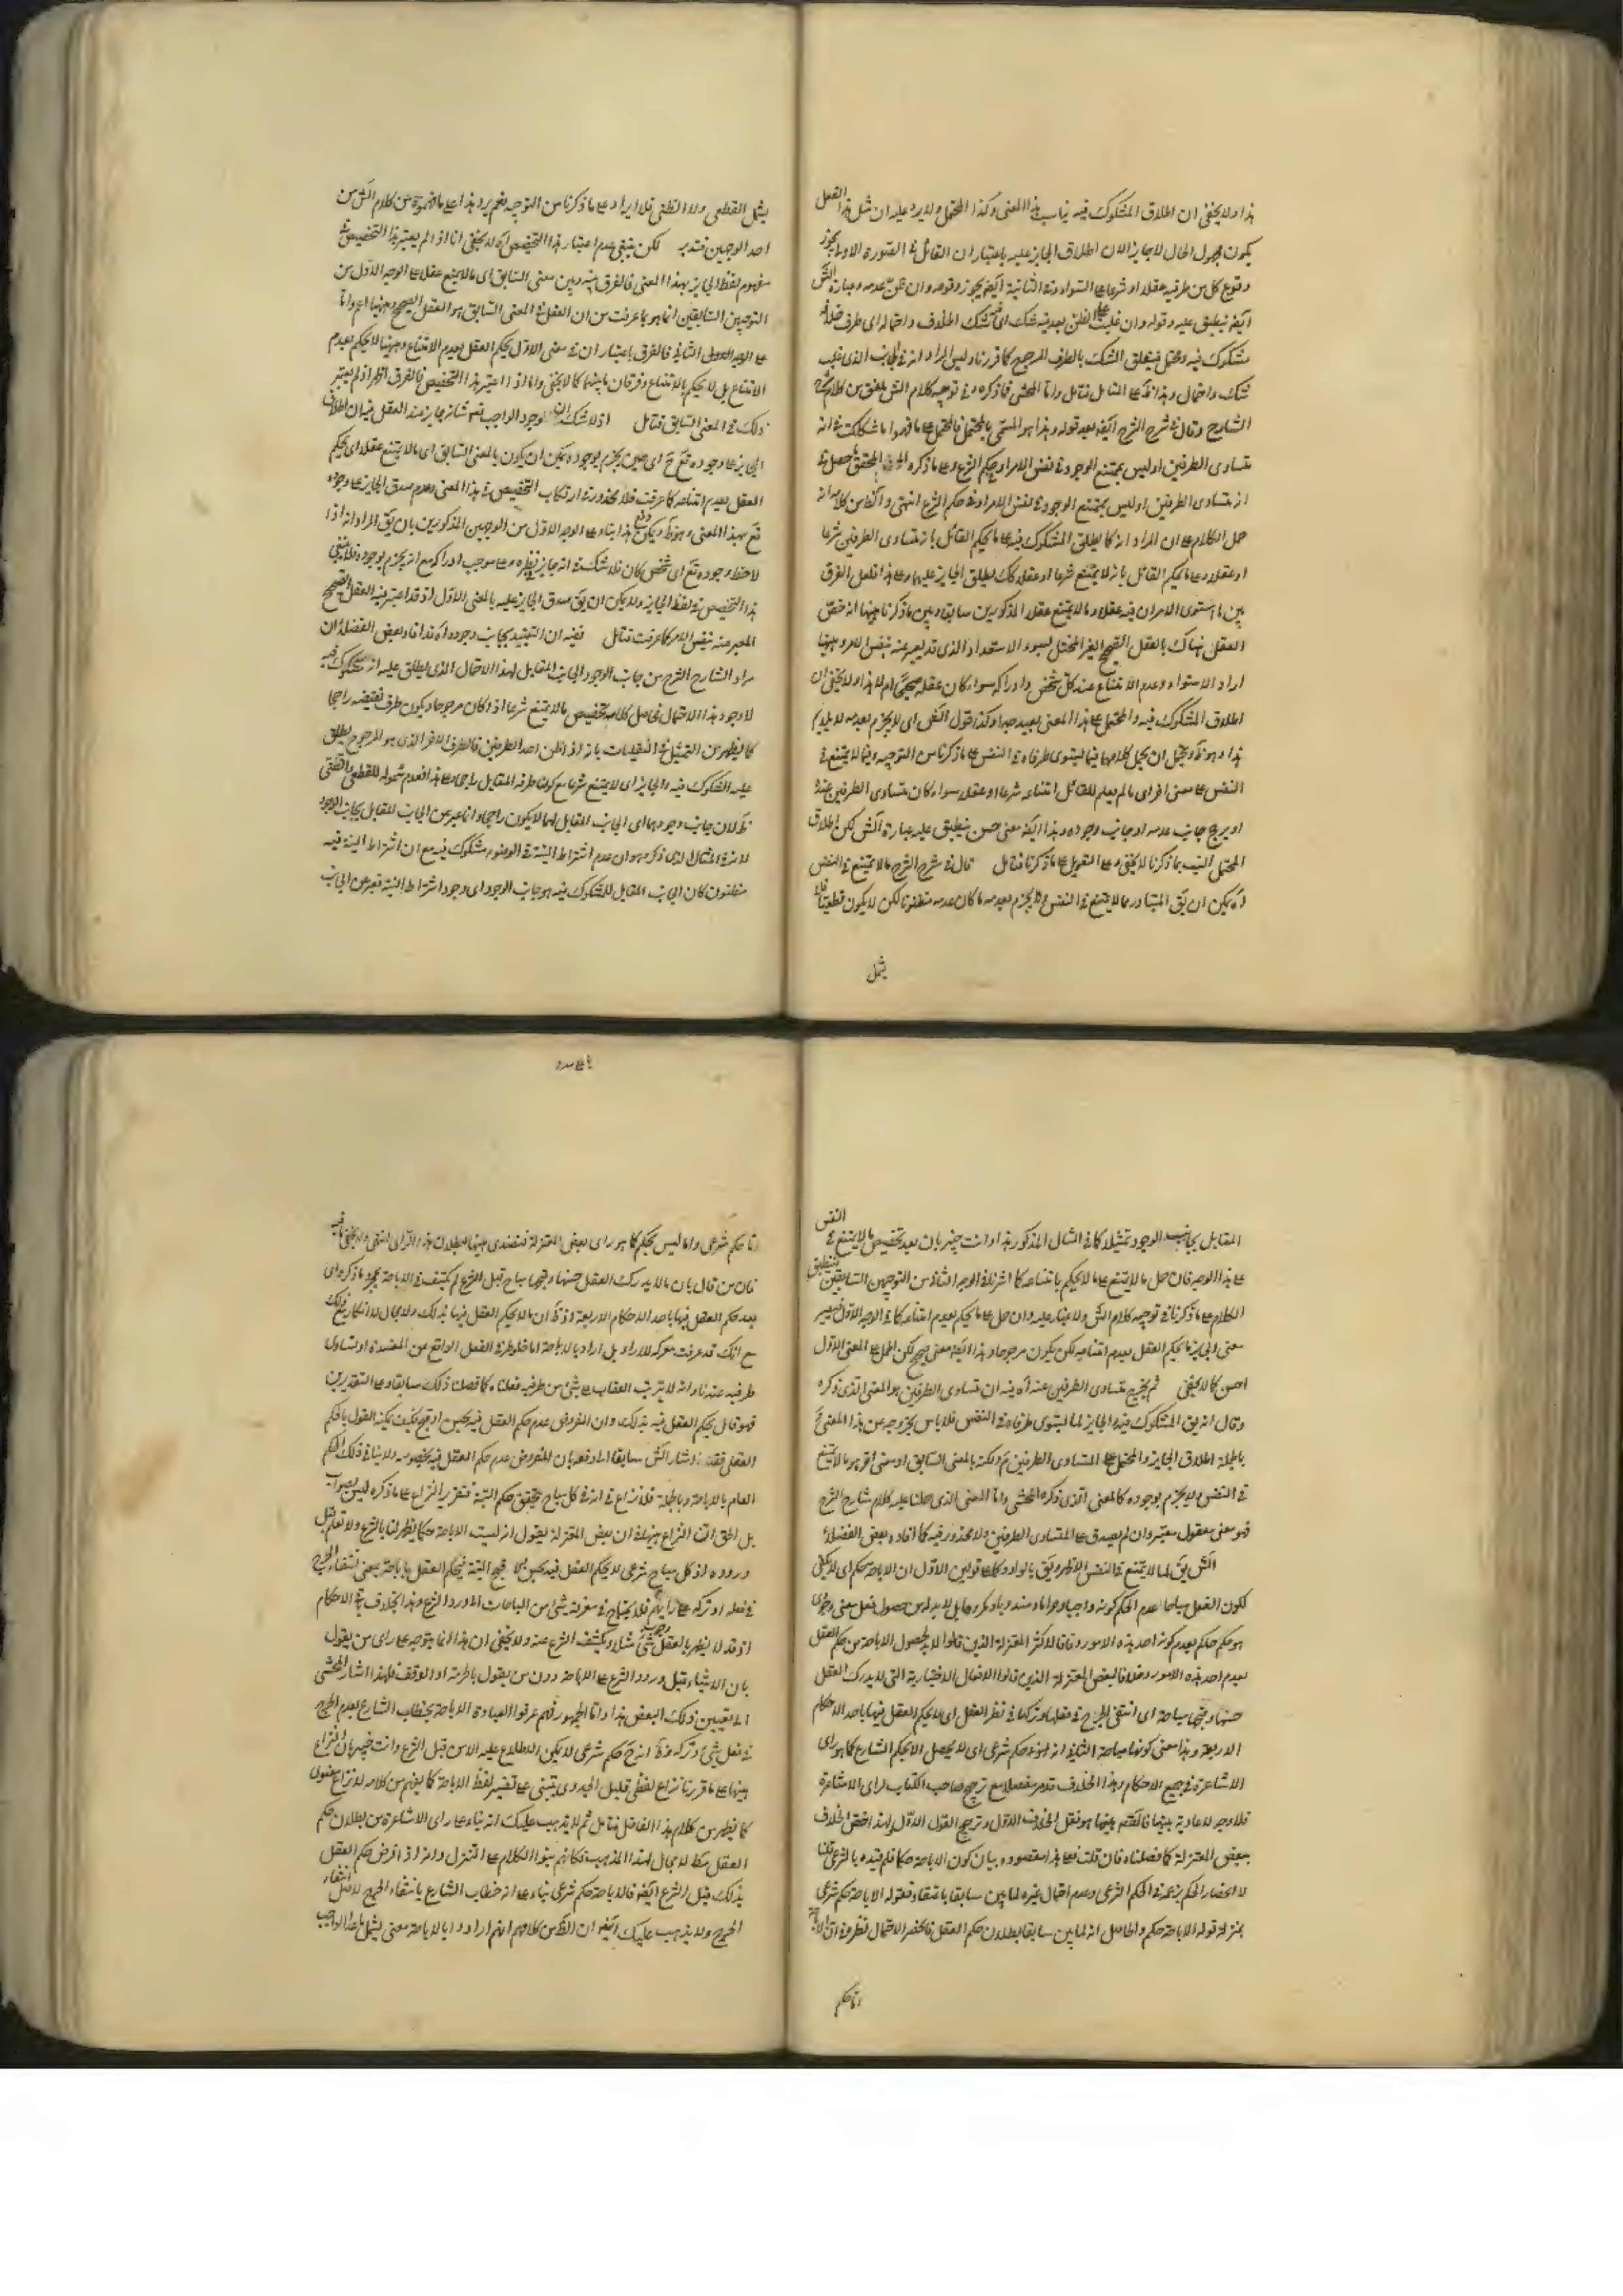 هذا ولا يخفى ان اطلاق المشكوك فيه يناسب هذا المعنى وكذا المحتمل ولا يرد عليه ان مثل هذا الفعل
يكون مجهول الحال لا جايز الا ان اطلاق الجايز عليه باعتبار ان القائل في الصورة الاولى يجوز
وقوع كل من طرفيه عقلا او شرعا على السواء وفي الثانية ايضا يجوز وقوعه وان ظن عدمه وعبارة الش
ايضا ينطبق عليه وقوله وان غلب على الظن بعد فيه شك اى في شك الخلاف واحتماله اى طرف خلافه
مشكوك فيه ومحتمل فيتعلق الشك بالطرف المرجوح كما قررنا وليس المراد انه في الجانب الذى غلب
الشارح وقال في شرح الشرح ايضا بعد قوله وهذا هو المسمى بالمحتمل فالمحتمل على ما فهموا ما شككت في انه
متساوى الطرفين او ليس بممتنع الوجود في نفس الامر او حكم الشرع وعلى ما ذكره المحقق ما حصل فيه
انه متساوى الطرفين او ليس بممتنع الوجود في نفس الامر او في حكم الشرع انتهى
حمل الكلام على ان المراد انه كما يطلق المشكوك فيه على ما يحكم القائل بانه متساوى الطرفين شرعا
او عقلا وعلى ما يحكم القائل بانه لا يمتنع شرعا او عقلا كك يطلق الجايز عليهما وعلى هذا فلعل الفرق
بين ما استوى الامران فيه عقلا وما لا يمتنع عقلا المذكورين سابقا وبين ما ذكرنا هيهنا انه خص
العقل هناك بالعقل الصحيح الغير المختل لسوء الاستعداد الذى قد يعبر عنه بنفس الامر وهيهنا
اراد الاستواء وعدم الامتناع عند كل شخص وادراكه سواء كان عقله صحيحا ام لا هذا ولا يخفى ان
اطلاق المشكوك فيه والمحتمل على هذا المعنى بعيد جدا وكذا قول الش اى لا يجزم بعدمه لا يلايم
هذا وهو ظ ويحتمل ان يحمل كلامهما فيما يستوى طرفاه في النفس على ما ذكرنا من التوجيه وفيما لا يمتنع في
النفس على معنى اخر اى ما لم يعلم للقائل امتناعه شرعا او عقلا سواء كان متساوى الطرفين عنده
او يرجح جانب عدمه او جانب وجوده وهذا ايضا معنى حسن ينطبق عليه عبارة الش لكن اطلاق
المحتمل انسب بما ذكرنا كما لا يخفى وعليه التعويل على ما ذكرنا فتامل قال في شرح الشرح ما لا يمتنع في النفس
اه يمكن ان يق المتبادر مما لا يمتنع في النفس ولا يجزم بعدمه ما كان عدمه مظنونا لكن لا يكون قطعيا فلا
يشمل
يشمل القطعى ولا الظنى فلا ايراد على ما ذكرنا من التوجيه نعم يرد هذا على ما فهموه من كلام الش من
احد الوجهين فتدبر لكن ينبغى عدم اعتبار هذا التخصيص اه لا يخفى انا اذا لم يعتبر هذا التخصيص في
مفهوم لفظ الجايز بهذا المعنى فالفرق بينه وبين معنى السابق اى ما لا يمتنع عقلا على الوجه الاول من
التوجهين السابقين انما هو بما عرفت من ان العقل في المعنى السابق هو العقل الصحيح وهيهنا اعم واما
على الوجه الثانى فالفرق باعتبار ان في معنى الاول يحكم العقل بعدم الامتناع وهيهنا لا يحكم بعدم
الامتناع بل لا يحكم بالامتناع وفرقان ما بينهما كما لا يخفى واما اذا اعتبر هذا التخصيص فالفرق اظهر اذ لم يعتبر
ذلك في المعنى السابق فتامل اذ لا شك ان وجود الواجب تعالى شانه جايز عند العقل فبيان اطلاق
الجايز على وجوده تع ح اى حين يجزم بوجوده يمكن ان يكون بالمعنى السابق اى ما لا يمتنع عقلا اى يحكم
العقل بعدم امتناعه كما عرفت فلا محذور في ارتكاب التخصيص في هذا المعنى وعدم صدق الجايز على وجوده
تع بهذا المعنى وهو ظ ويمكن دفع هذا بناء على الوجه الاول من الوجهين المذكورين بان يق المراد انه اذا
لاحظ وجوده تع اى شخص كان فلا شك في انه جايز بنظره وعلى موجب ادراكه مع انه يجزم بوجوده فلا ينبغى
هذا التخصيص في لفظ الجايز ولا يمكن ان يق صدق الجايز عليه بالمعنى الاول اذ قد اعتبر فيه العقل الصحيح
المعبر عنه بنفس الامر كما عرفت فتامل ففيه ان التقييد بجانب وجوده اه قد افاد بعض الفضلاء ان
مراد الشارح الشرح من جانب الوجود الجانب المقابل لهذا الاحتمال الذى يطلق عليه انه مشكوك فيه
لا وجود هذا الاحتمال فحاصل كلامه تخصيص ما لا يمتنع شرعا اذا كان مرجوحا ويكون طرف نقيضه راجحا
كما يظهر من التمثيل في النقليات بانه اذا ظن احد الطرفين فالطرف الاخر الذى هو المرجوح يطلق
عليه المشكوك فيه والجايز اى لا يمتنع شرعا مع كون طرفه المقابل راجحا وعلى هذا فعدم شموله للقطعى والظنى
ظ لان جانب وجودهما اى الجانب المقابل لهما لا يكون راجحا وانما عبر عن الجانب المقابل بجانب الوجود
لانه في المثال الذى ذكره هو ان عدم اشتراط النية في الوضوء مشكوك فيه مع ان اشتراط النية فيه
مظنون كان الجانب المقابل للمشكوك فيه هو جانب الوجود اى وجود اشتراط النية فعبر عن الجانب
المقابل بجانب الوجود تمثيلا كما في المثال المذكور هذا وانت خبير بان بعد تخصيص ما لا يمتنع في النفس
على هذا الوجه فان حمل ما لا يمتنع على ما لا يحكم بامتناعه كما اشرنا في الوجه الثانى من التوجهين السابقين فينطبق
الكلام على ما ذكرنا في توجيه كلام الش ولا غبار عليه وان حمل على ما يحكم بعدم امتناعه كما في الوجه الاول فيصير
معنى الجايز ما يحكم العقل بعدم امتناعه لكن يكون مرجوحا وهذا ايضا معنى صحيح لكن الحمل على المعنى الاول
احسن كما لا يخفى ثم يخرج متساوى الطرفين عنه اه فيه ان متساوى الطرفين هو المعنى الذى ذكره
وقال انه يق المشكوك فيه والجايز لما يستوى طرفاه في النفس فلا باس بخروجه عن هذا المعنى ح
في النفس ولا يجزم بوجوده كالمعنى الذى ذكره المحشى واما المعنى الذى حملنا عليه كلام شارح الشرح
فهو معنى معقول معتبر وان لم يصدق على المتساوى الطرفين ولا محذور فيه كما افاده بعض الفضلاء
هو حكم حاكم بعدم كونه احد هذه الامور وفاقا لاكثر المعتزلة الذين قالوا لا يحصول الاباحة من حكم العقل
بعدم احد هذه الامور وخلافا لبعض المعتزلة الذين قالوا الافعال الاختيارية التى لا يدرك العقل
حسنها وقبحها مباحة اى انتفى الحرج في فعلها وتركها في نظر العقل اى لا يحكم العقل فيها باحد الاحكام
الاربعة وهذا معنى كونها مباحة الثانى انه هو حكم شرعى اى لا يحصل الا بحكم الشارع كما هو راى
الاشاعرة في جميع الاحكام وهذا الخلاف قد مر مفصلا مع ترجيح صاحب الكتاب لراى الاشاعرة
ببعض المعتزلة كما فصلناه فان قلت فعلى هذا مقصوده بيان كون الاباحة حكما فلم قيده بالشرعى قلنا
لانحصار الحكم بزعمه في الحكم الشرعى وعدم احتمال غيره لما بين سابقا بانتفاءه فقوله الاباحة حكم شرعى
بمنزلة قوله الاباحة حكم والحاصل انه لما بين سابقا بطلان حكم العقل فانحصر الاحتمال فنظره في ان الاباحة
اما حكم
اما حكم شرعى واما ليس بحكم كما هو راى بعض المعتزلة فتصدى هيهنا لبطلان هذا الراى انتهى ولا يخفى ما فيه
فان من قال بان ما لا يدرك العقل حسنها وقبحها مباح قبل الشرع لم يكتف في الاباحة بمجرد ما ذكره اى
بعد حكم العقل فيها باحد الاحكام الاربعة اذ ظ ان ما لا يحكم العقل فيها بذلك ولا مجال لانكار ذلك
طرفيه عنده وانه لا يترتب العقاب على شئ من طرفيه فعلناه كما فصلنا ذلك سابقا وعلى التقديرين
فهو قائل بحكم العقل فيه بذلك وان المفروض عدم حكم العقل فيه بحسن او قبح فكيف يمكنه القول بالحكم
العقلى فقد اشار الش سابقا الى دفعه بان المفروض عدم حكم العقل فيه بخصوصه ولا ينافى ذلك الحكم
العام بالاباحة وبالجملة فلا نزاع في انه في كل مباح يتحقق حكم البتة فتقرير النزاع على ما ذكره ليس بصواب
بل الحق ان النزاع هيهنا في ان بعض المعتزلة يقول انه ليست الاباحة حكما يظهر لنا بالشرع ولا تعلم قبل
وروده اذ كل مباح شرعى لا يحكم العقل فيه بحسن ولا قبح البتة فيحكم العقل باباحته بمعنى انتفاء الحرج
في فعله او تركه على رايهم فلا يحتاج في معرفة شئ من المباحات الى ورود الشرع وهذا بخلاف بقية الاحكام
اذ قد لا يظهر بالعقل وجوب شئ مثلا ويكشف الشرع عنه ولا يخفى ان هذا انما يتوجه على راى من يقول
بان الاشياء قبل ورود الشرع على الاباحة دون من يقول بالحرمة او الوقف فلهذا اشار المحشى
الى تعيين ذلك البعض هذا واما الجمهور فهم عرفوا العبادة الاباحة بخطاب الشارع بعدم الحرج
في فعل شئ وتركه فظ انه ح حكم شرعى لا يمكن الاطلاع عليه الا من قبل الشرع وانت خبير بان النزاع
بينهما على ما قررنا نزاع لفظى قليل الجدوى يبتنى على تفسير لفظ الاباحة كما يفهم من كلامه لا نزاع معنوى
كما يظهر من كلام هذا الفاضل فتامل ثم لا يذهب عليك انه بناء على راى الاشاعرة من بطلان حكم
العقل مط لا مجال لهذا المذهب فكانهم بنوا الكلام على التنزل وانه اذا فرض حكم العقل
بذلك قبل الشرع ايضا فالاباحة حكم شرعى بناء على انه خطاب الشارع بانتفاء الحرج لا اصل انتفاء
الحرج ولا يذهب عليك ايضا ان الظ من كلامهم انهم ارادوا بالاباحة معنى يشمل ما عدا الواجب